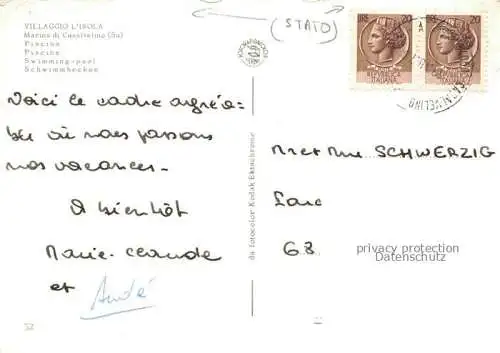 VILLAGGIO L'ISOLA
Marina di Casalvelino (Sa)
Piscina
Piscine
Swimming-pool
Schwimmbecken
(STATO)
20
20
REPUBBLICA
ITALIANA
Voici le cadre agréa-
ble où nous passons
nos vacances.
A bientôt
Marie-claude
et André
M et Mme SCHWERZIG
68
privacy protection
Datenschutz
da fotocolor Kodak Ektachrome
52